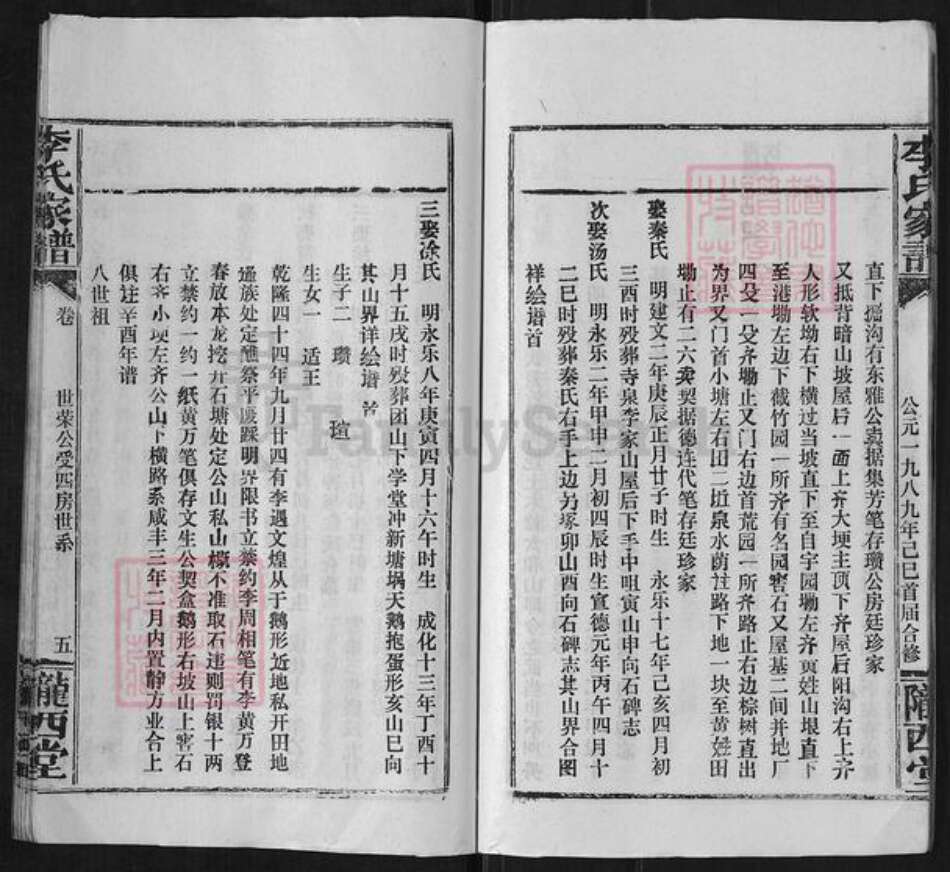 李氏家譜
公元一九八九年己巳首届合修
隴西堂
直下掘沟有东雅公卖据集芳笔存瓒公房廷珍家
又抵背暗山坡屋后一面上齐大埂主顶下齐屋后阳沟右上齐
人形软坳右下横过当坡直下至自宇园塝左齐黄姓山垠直下
至港塝左边下截竹园一所齐有名园窖石又屋基二间并地厂
四殳一殳齐塝止又门右边首荒园一所齐路止右边棕树直出
为界又门首小塘左右田二坵泉水荫注路下地一块至黄姓田
塝止有二六卖契据德连代笔存廷珍家
娶秦氏 明建文二年庚辰正月廿子时生 永乐十七年己亥四月初
三酉时殁葬寺泉李家山屋后下手中咀寅山申向石碑志
次娶汤氏 明永乐二年甲申二月初四辰时生宣德元年丙午四月十
二巳时殁葬秦氏右手上边为塚卯山酉向石碑志其山界合图
祥绘谱首
三娶涂氏 明永乐八年庚寅四月十六午时生 成化十三年丁酉十
月十五戌时殁葬团山下学堂冲新塘埚天鹅抱蛋形亥山巳向
其山界详绘谱首
生子二 瓒 瑄
生女一 适王
乾隆四十四年九月廿四有李遇文煌从于鹅形近地私开田地
通族处定醮祭平复踩明界限书立禁约李周相笔有李黄万登
春放本龙挖开石塘处定公山私山概不准取石违则罚银十两
立禁约一约一纸黄万笔俱存文生公契盒鹅形右坡山上窖石
右齐小埂左齐公山下横路系咸丰三年二月内置静方业合上
俱注辛酉年谱
八世祖
李氏家譜
卷
世荣公受四房世系
五
隴西堂